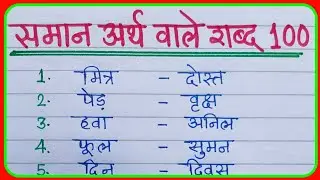 समान अर्थ वाले शब्द 100
1. मित्र - दोस्त
2. पेड़ - वृक्ष
3. हवा - अनिल
4. फूल - सुमन
5. दिन - दिवस